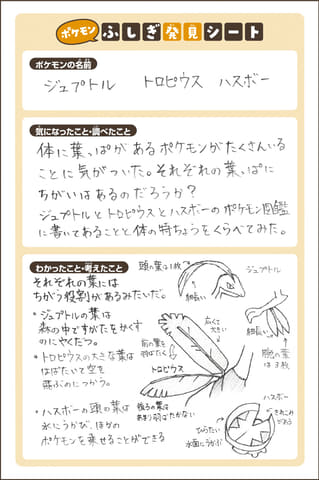 ポケモン ふしぎ発見シート
ポケモンの名前
ジュプトル トロピウス ハスボー
気になったこと・調べたこと
体に葉っぱがあるポケモンがたくさんいる
ことに気がついた。それぞれの葉っぱに
ちがいはあるのだろうか?
ジュプトルとトロピウスとハスボーのポケモン図鑑
に書いてあることと体の特ちょうをくらべてみた。
わかったこと・考えたこと
それぞれの葉には
ちがう役割があるみたいだ。
・ジュプトルの葉は
森の中ですがたをかくす
のにやくだつ。
・トロピウスの大きな葉は
はばたいて空を
飛ぶのにつかう。
・ハスボーの頭の葉は
水にうかび、ほかの
ポケモンを乗せることができる
頭の葉は1枚
ジュプトル
細長い
細長い
腕の葉
は3枚
広くて
大きい
前の葉を
羽ばたく
トロピウス
後ろの葉は
あまり羽ばたかない
ハスボー
ぎざぎざ
がある
ひらたい
水面にうかぶ